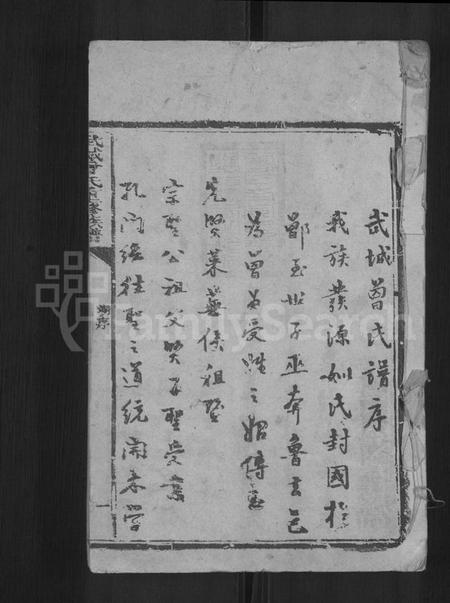 武城曾氏譜序
我族發源姒氏封國於
鄫至世子巫奔魯去邑
為曾為受姓之始傳至
先賢萊蕪侯祖暨
宗聖公祖父賢子聖受業
孔門繼往聖之道統開來學
武城曾氏重修族譜
序
一
FamilySearch